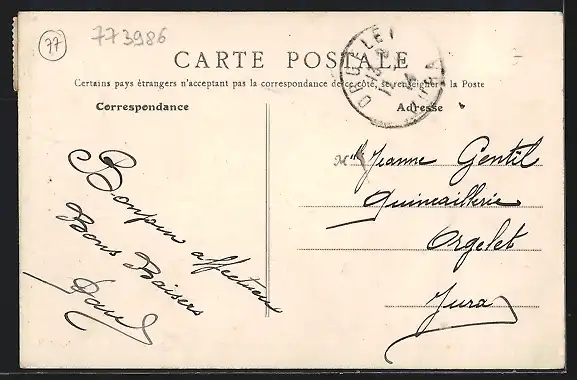 77
773986
CARTE POSTALE
Certains pays étrangers n'acceptant pas la correspondance de ce côté, se renseigner à la Poste
Correspondance
Adresse
ORGELET
JURA
Mlle Jeanne Gentil
Quincaillerie
Orgelet
Jura
Bonjour affectueux
Bons Baisers
Paul